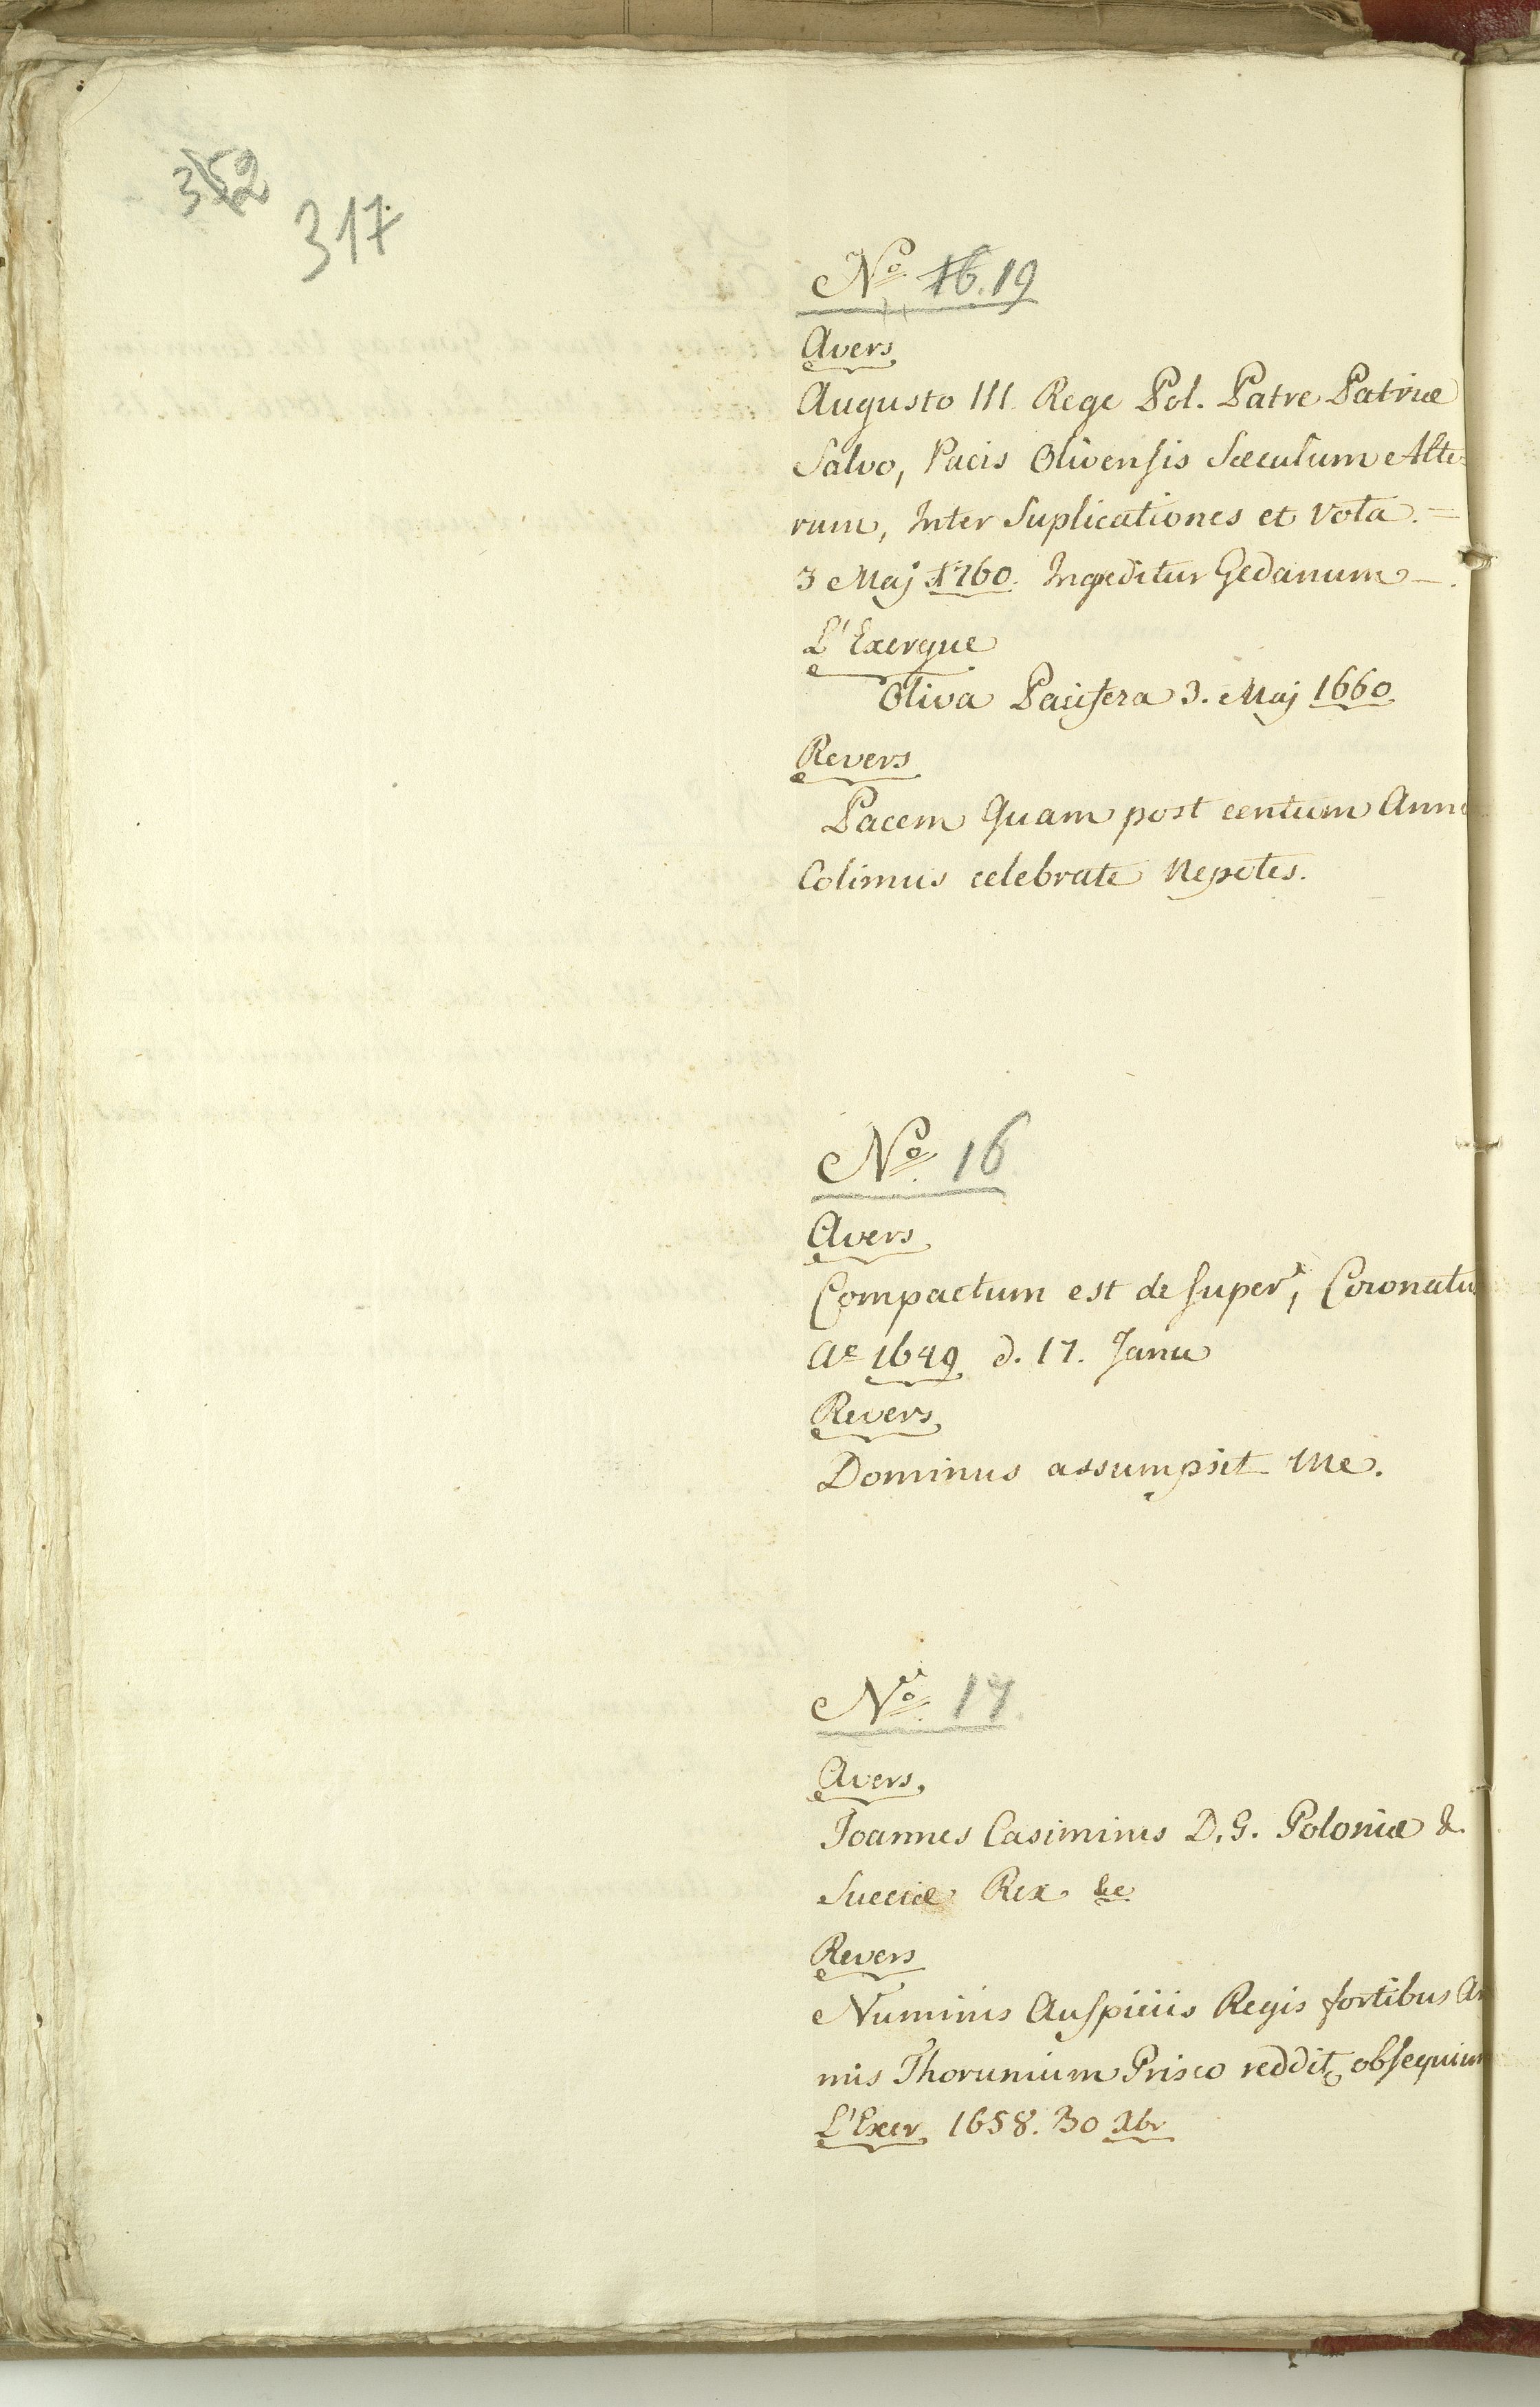 352
317
No 16. 19
Avers
Augusto III. Rege Pol. Patre Patriæ
Salvo, Pacis Olivensis Sæculum Alte=
rum, Inter Suplicationes et Vota. =
3 Maj 1760. Ingreditur Gedanum —.
L'Exergue
Oliva Pacifera 3. Maj 1660
Revers
Pacem Quam post centum Anno
Colimus celebrate Nepotes.
No 16
Avers
Compactum est de super, Coronatu
Ao 1649 d. 17. Janu
Revers
Dominus assumpsit Me.
No 17.
Avers.
Joannes Casimirus D. G. Poloniæ &
Sueciæ Rex &c
Revers
Numinis Auspiciis Regis fortibus Ar
mis Thorunium Prisco reddit obsequium
L'Exer 1658. 30 Xbr